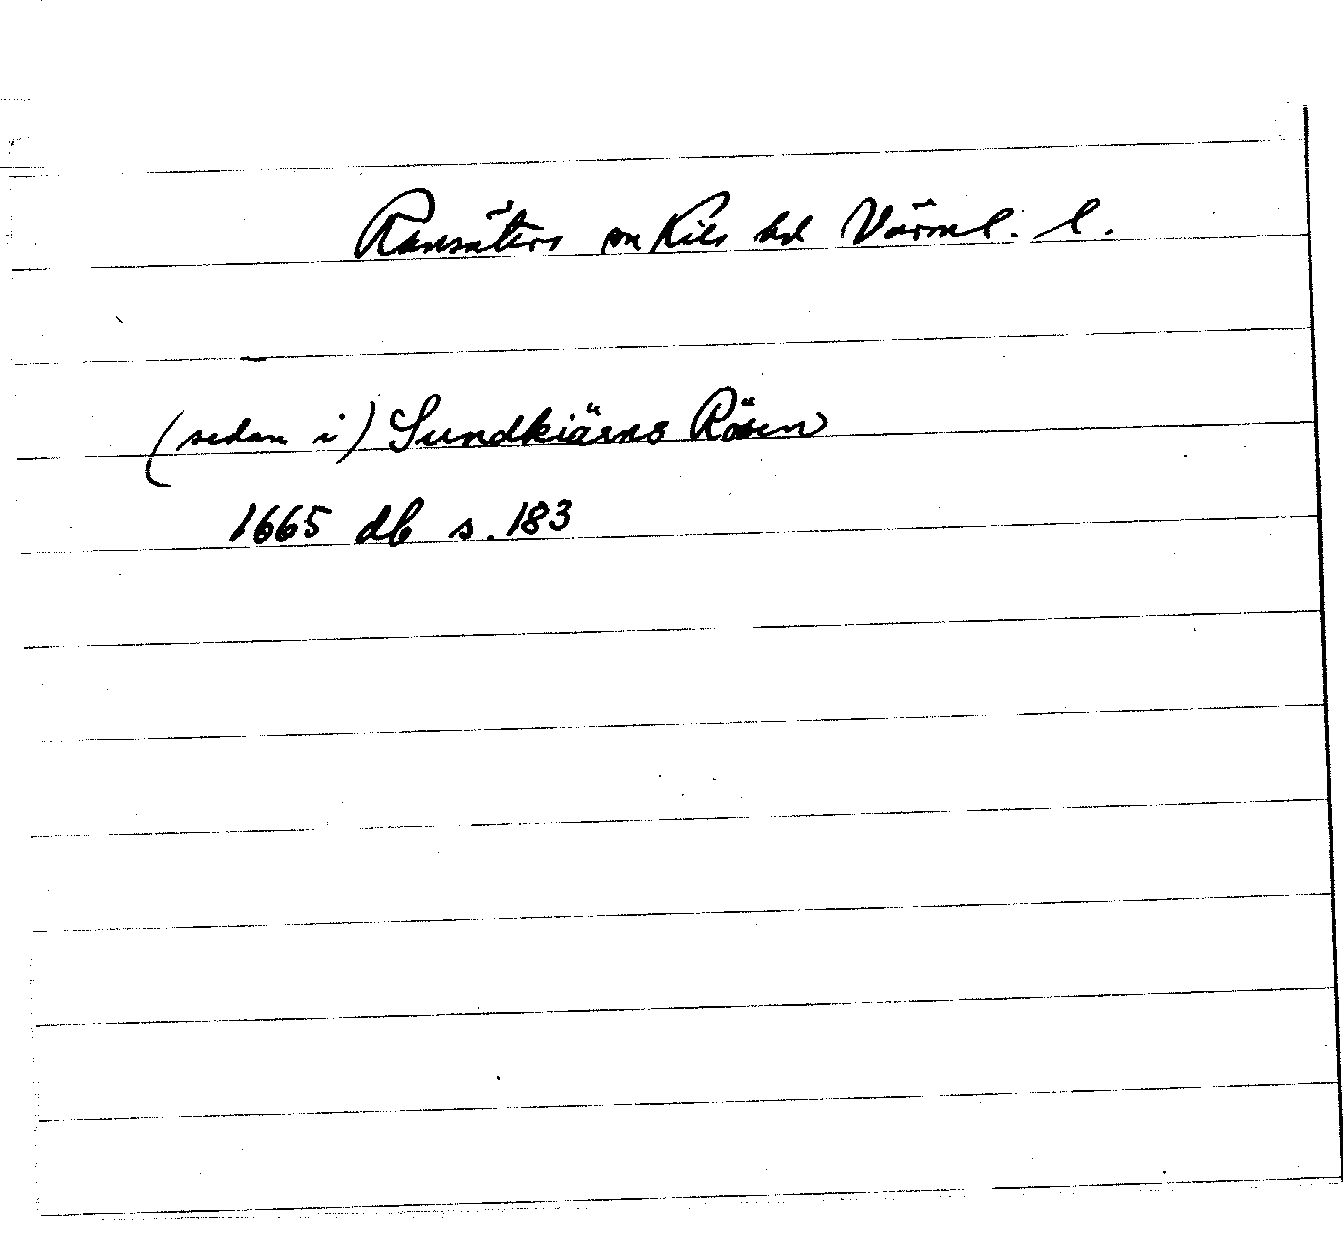 Ransäters sn Kils hd Värml. l.
(sedan i) Sundkiärns Rösen
1665 db s. 183